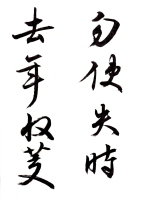 勿使失時
去年收